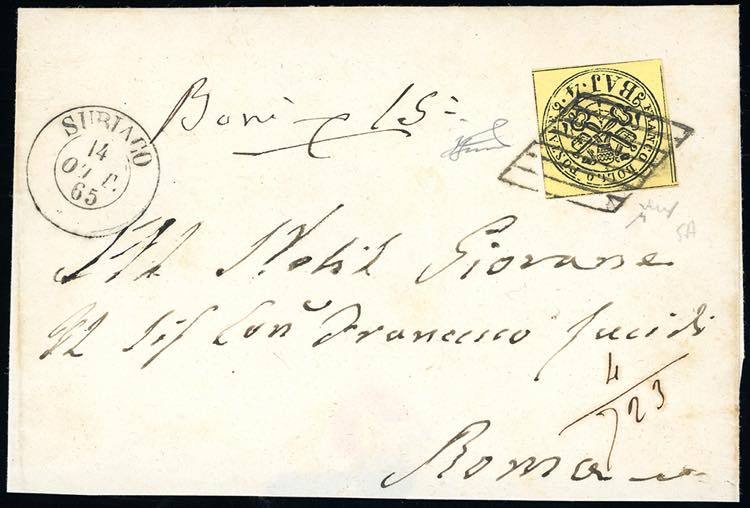 SUBIACO
14
OTT.
65
Boni 15:
4 BAJ
FRANCO BOLLO POSTALE
All Nobil Giovane
Il Sig Con Francesco Lucidi
4
723
Roma
SA